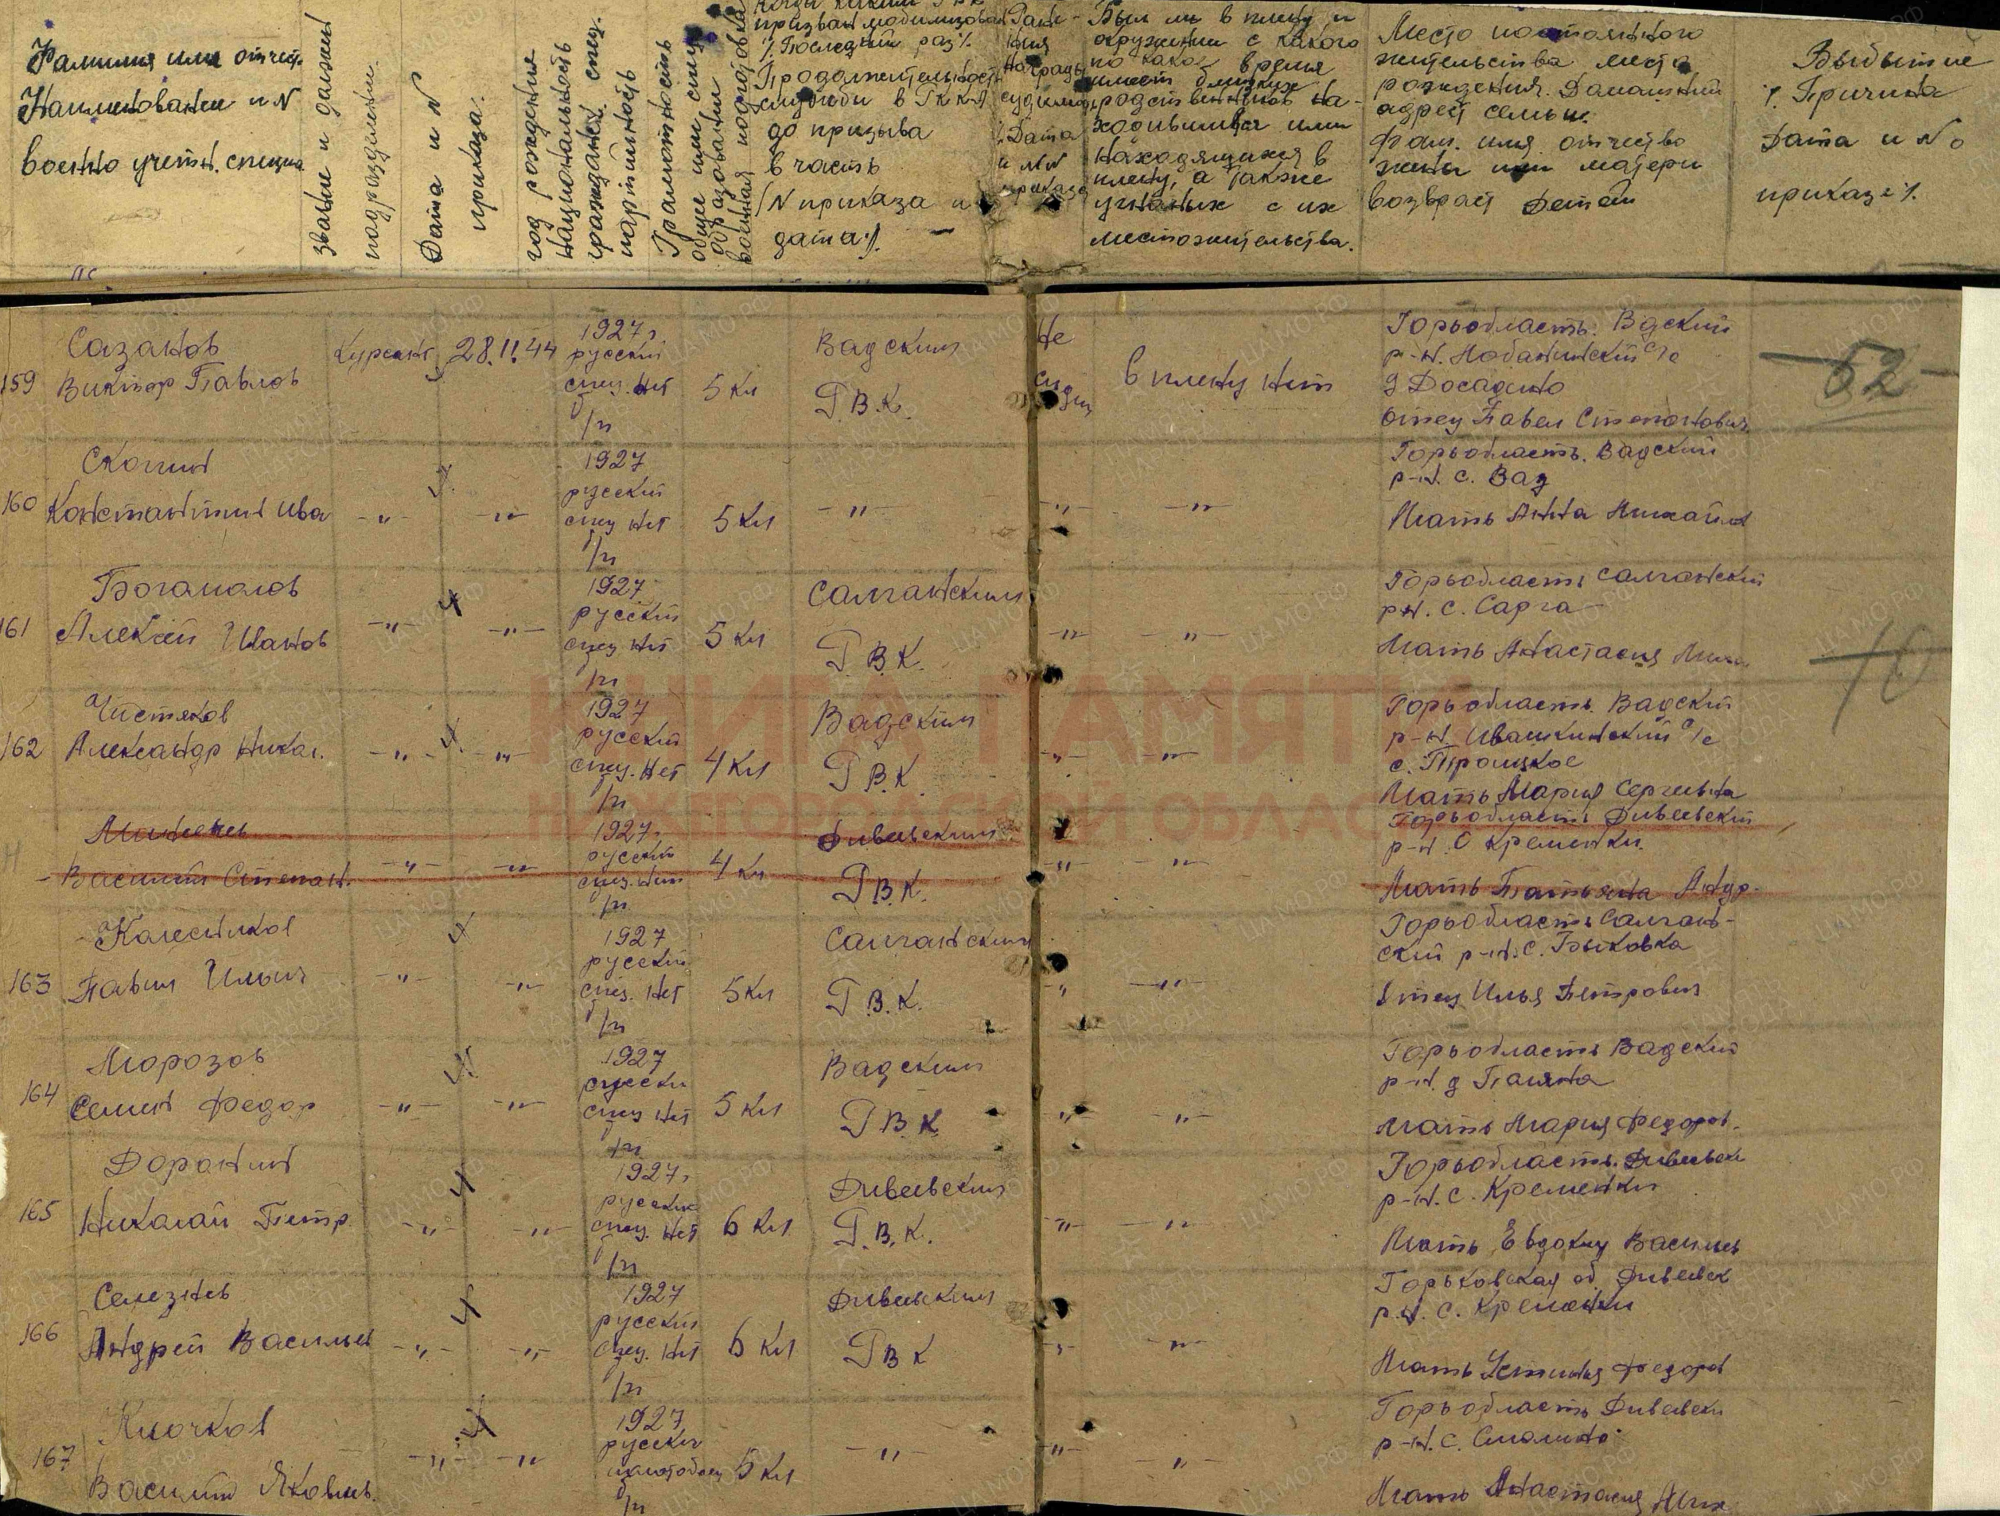 Фамилия имя отчеств.
Наименование и N
военно учетн. специа.
звание и должн
подразделении.
Дата и N
приказа.
год рождения
национальность
граждан. спец.
партийность
Грамотность
образование
военная подготовка
призван мобилизован
/. Последний раз/.
Продолжительность
службы в РККА
до призыва
в часть
/N приказа и
дата/.
Ране-
ния
награды
судимо
/. Дата
и NN
приказа
Был ли в плену и
окружении с какого
по какое время
имеет близких
родственников на-
ходившихся или
находящихся в
плену, а также
угнанных с их
местожительства.
Место постоянного
жительства место
рождения. Домашний
адрес семьи.
Фам. имя отчество
жены или матери
возвраст детей
Выбытие
/. Причина
Дата и No
приказа/.
159 Сазанов
Виктор Павлов
Курсант 28.11.44
1927 г.
русский
спец. нет
б/п
5 кл
Вадским
Р.В.К.
Не
судим
в плену нет
Горьобласть. Вадский
р-н. Лобанинский с/с
д Досадино
отец Павел Степанович
52
160 Скопин
Константин Ива
-"- -"-
1927
русский
спец нет
б/п
5 кл
-"- -"- -"-
Горьобласть. Вадский
р-н. с. Вад
Мать Анна Михайл
161 Богамолов
Алексей Иванов
-"- -"-
1927
русский
спец нет
б/п
5 кл
Салганским
Р.В.К.
-"- -"-
Горьобласть Салганский
р-н. с. Сарга
Мать Анастасия Миха
10
162 Чистяков
Александр Никол.
-"- -"-
1927
русский
спец. нет
б/п
4 кл
Вадским
Р.В.К.
-"- -"-
Горьобласть. Вадский
р-н Ивашкинский с/с
с. Троицкое
Мать Мария Сергеевна
Василий Степан.
-"- -"-
1927 г.
русский
спец. нет
б/п
4 кл
Дивеевским
Р.В.К.
-"- -"-
Горьобласть Дивеевский
р-н. с Кременки.
Мать Татьяна Андр.
163 Колесников
Павел Ильич
-"- -"-
1927
русский
спец. нет
б/п
5 кл
Салганским
Р.В.К.
-"- -"-
Горьобласть Салган-
ский р-н. с. Быковка
Отец Илья Петрович
164 Морозов
Семен Федор
-"- -"-
1927
русски
спец нет
б/п
5 кл
Вадским
Р.В.К
-"- -"-
Горьобласть Вадский
р-н. д Паляна
Мать Мария Федоров.
165 Доронин
Николай Петр.
-"- -"-
1927 г
русский
спец. нет
б/п
6 кл
Дивеевским
Р.В.К.
-"- -"-
Горьобласть. Дивеевск
р-н. с. Кременки
Мать Евдокия Васильев
166 Селезнев
Андрей Васильев
-"- -"-
1927
русский
спец. нет
б/п
6 кл
Дивеевским
РВК
-"- -"-
Горьковская об. Дивеевск
р.н. с. Кременки
Мать Устинья Федоров
167 Клочков
Василий Яковлев.
-"- -"-
1927
русский
молотобоец
б/п
5 кл
-"- -"- -"-
Горьобласть Дивеевск
р-н. с. Смолино
Мать Анастасия Мих
КНИГА ПАМЯТИ
НИЖЕГОРОДСКОЙ ОБЛАСТИ